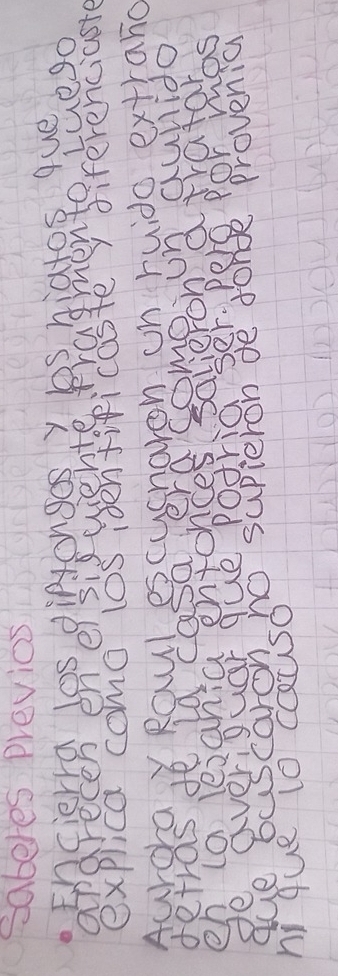 Saberes Previos
• Encierra los diptongos y los hiatos que
aparecen en el siguiente fragmento luego
explica como los identificaste y diferenciaste
Aurora y Rauul escucharon un ruido extraño
detras de la casa era como un aullido
en la lejania entonces salieron a tratar
de averiguar que podria ser. pero por mas
que buscaron no supieron de donde provenia
ni que lo causo